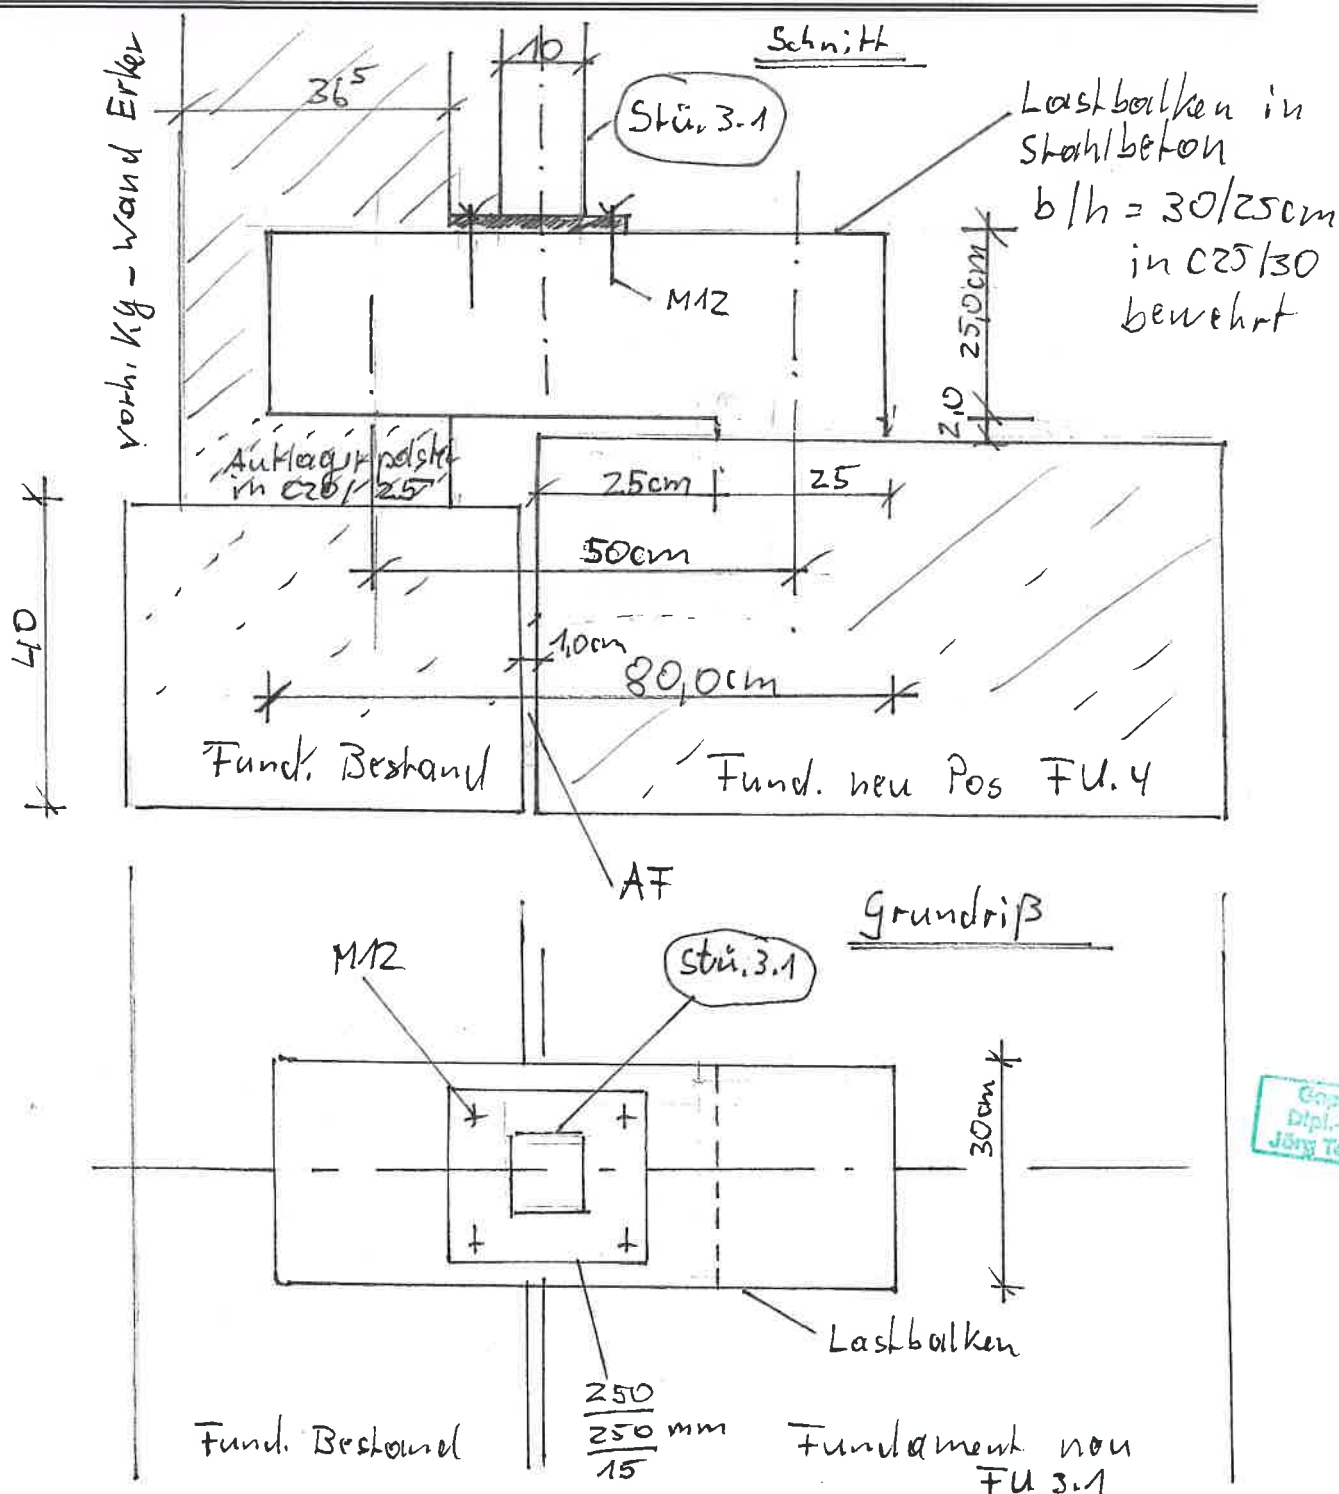 Schnitt
10
36⁵
vorh. KG-Wand Erker
Stü. 3.1
Lastbalken in
Stahlbeton
b/h = 30/25cm
in C25/30
bewehrt
M12
25,0cm
2,0
Auflagerpolster
in C20/25
25cm
25
50cm
40
1,0cm
80,0cm
Fund. Bestand
Fund. neu Pos FU.4
AF
Grundriß
M12
Stü. 3.1
30cm
Dipl.-
Jörg
Lastbalken
250
250 mm
15
Fund. Bestand
Fundament neu
FU 3.1